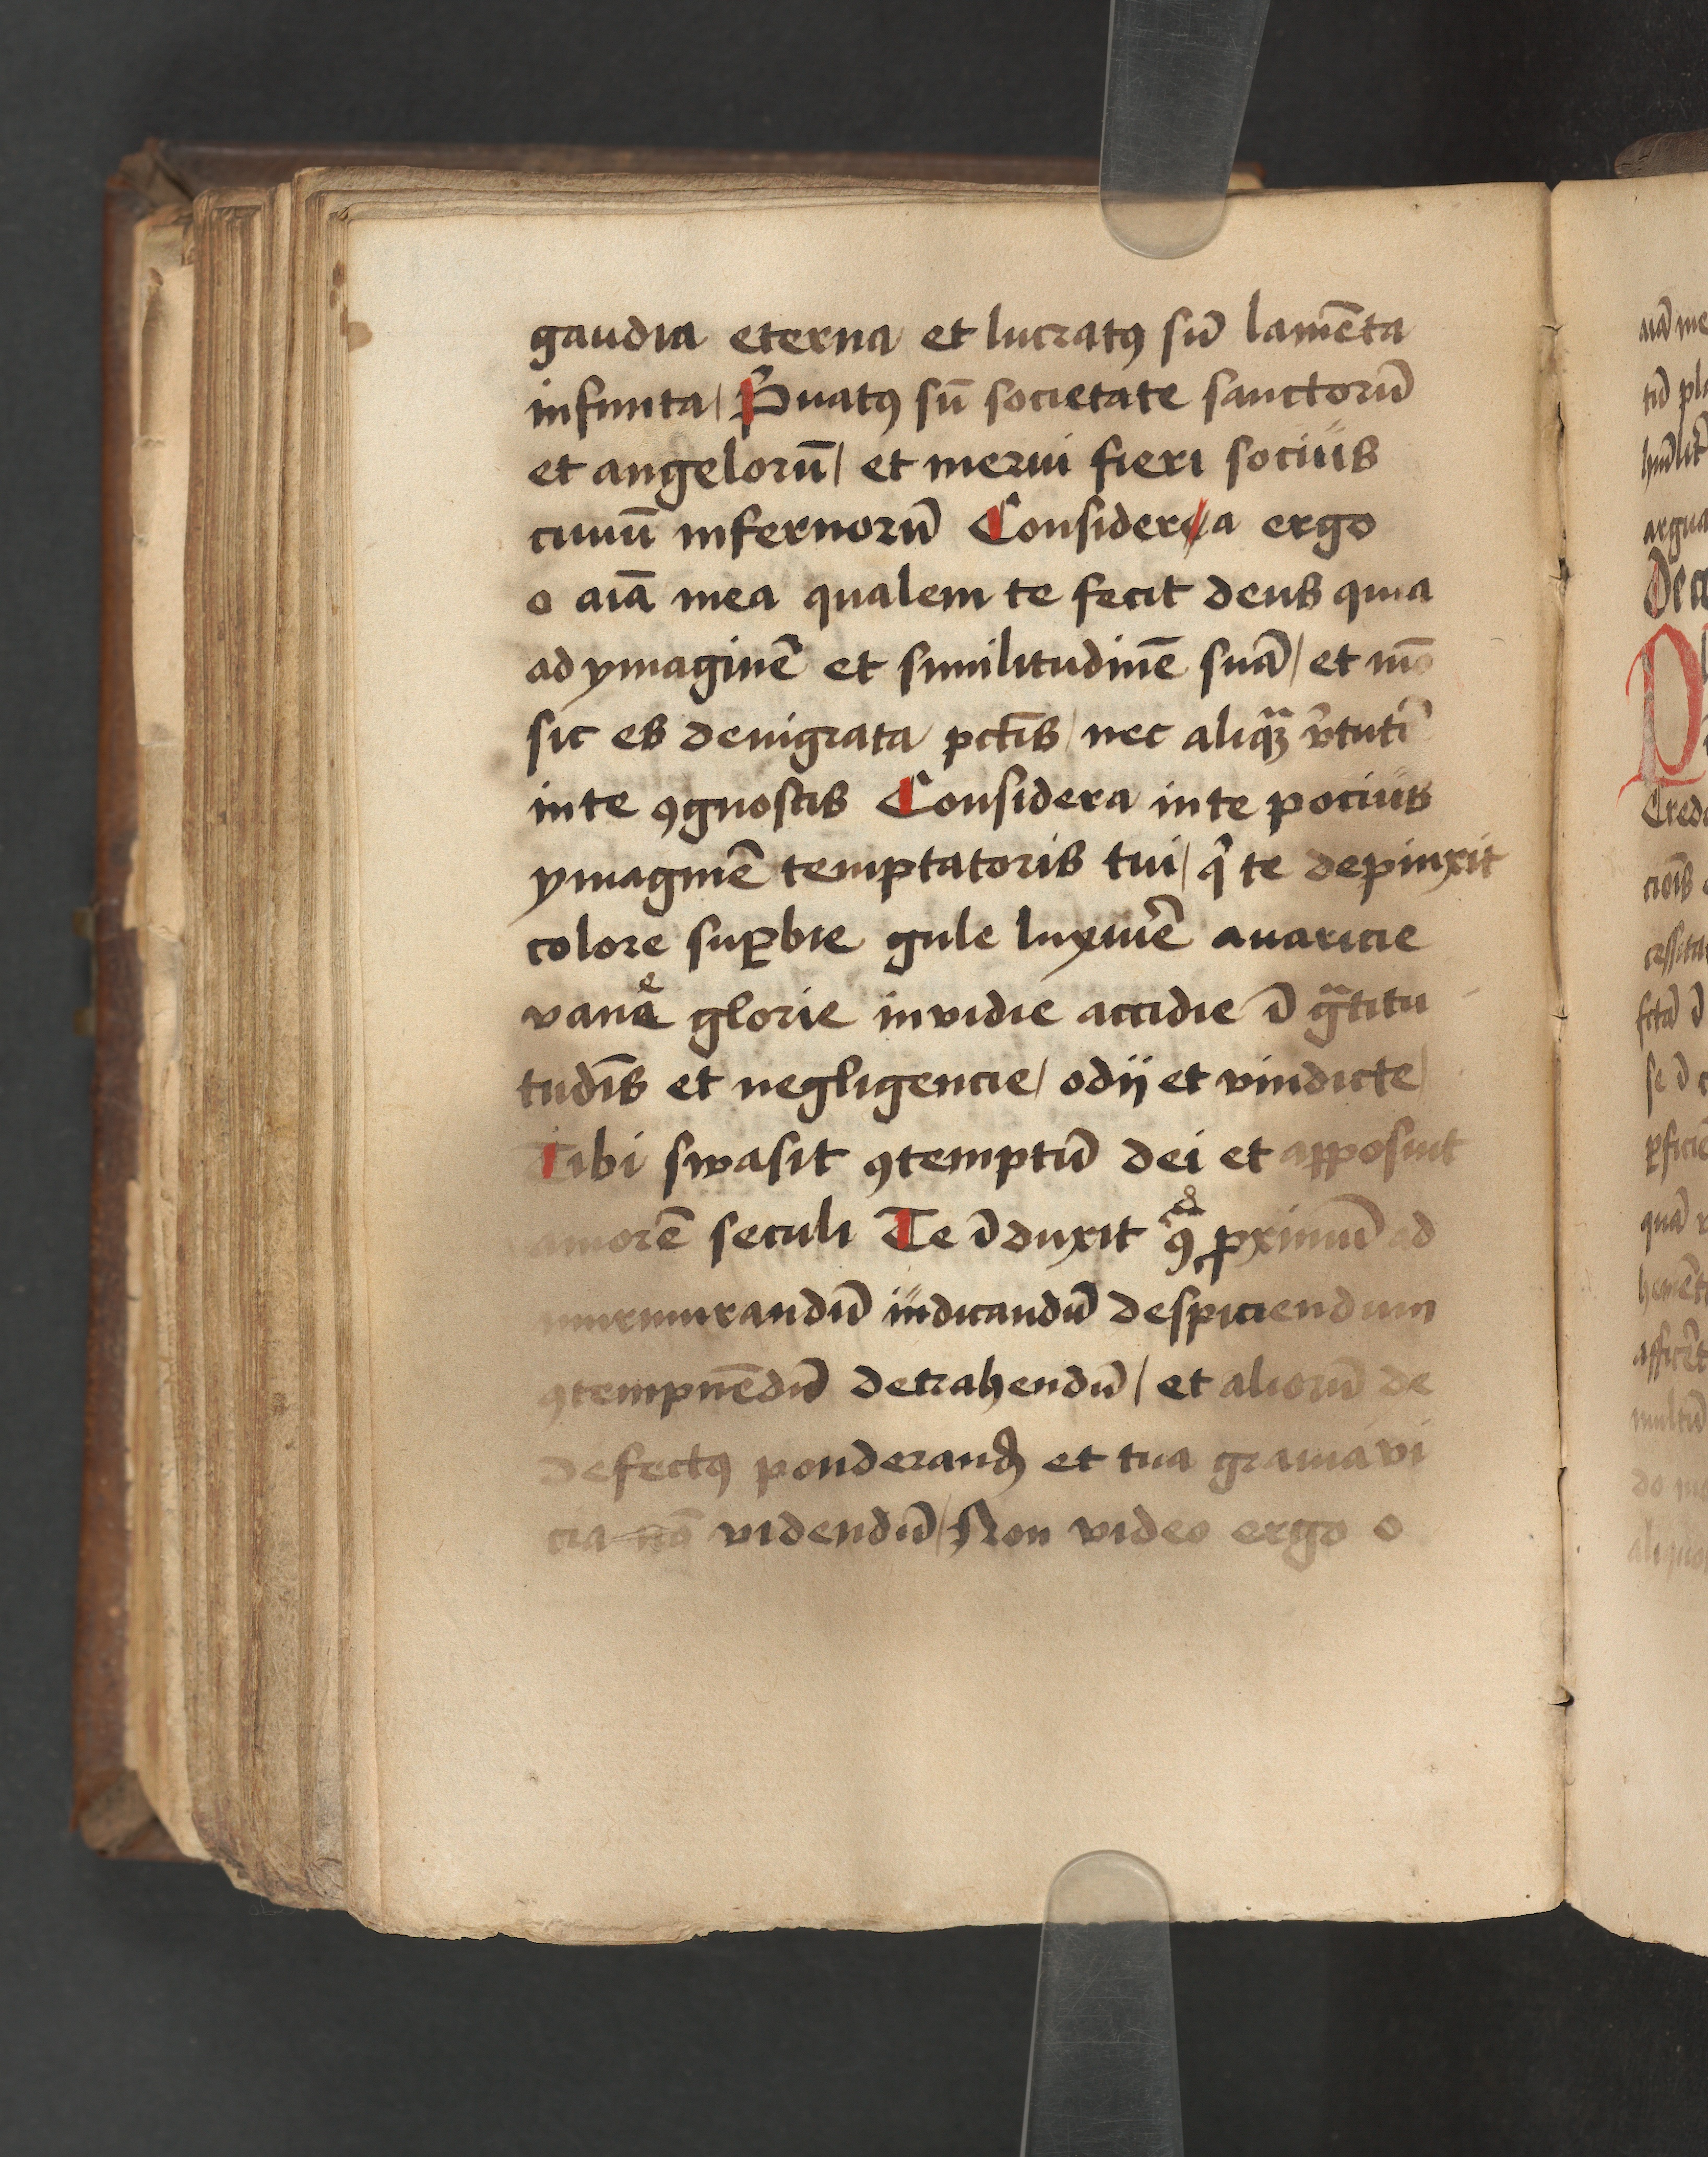 gaudia eterna et lucratꝯ sū lamēta
infinita / Pͥuatꝯ sū societate sanctorū
et angelorū / et merui fieri socius
ciuiū infernorū Considerea ergo
o aīa mea qualem te fecit deus quia
ad ymaginē et similitudinē suā / et mō
sic es denigrata pctīs / nec aliqͣꝫ v̾tutē
in te ꝯgnoscis Considera in te pocius
ymaginē temptatoris tui / qͥ te depinxit
colore suꝑbie gule luxurie avaricie
vanae glorie invidie accidie ī gͣtitu
tudīs et negligencie / odij et vindicte /
Tibi swasit ꝯtemptū dei et apposuit
amorē seculi Te īduxit ꝓximū ad
murmurandū iudicandū despiciendum
ꝯtempnēdū detrahendū / et aliorū de
defectꝯ ponderand et tua grauia vi
cia nō videndū / Non video ergo o
aiā me